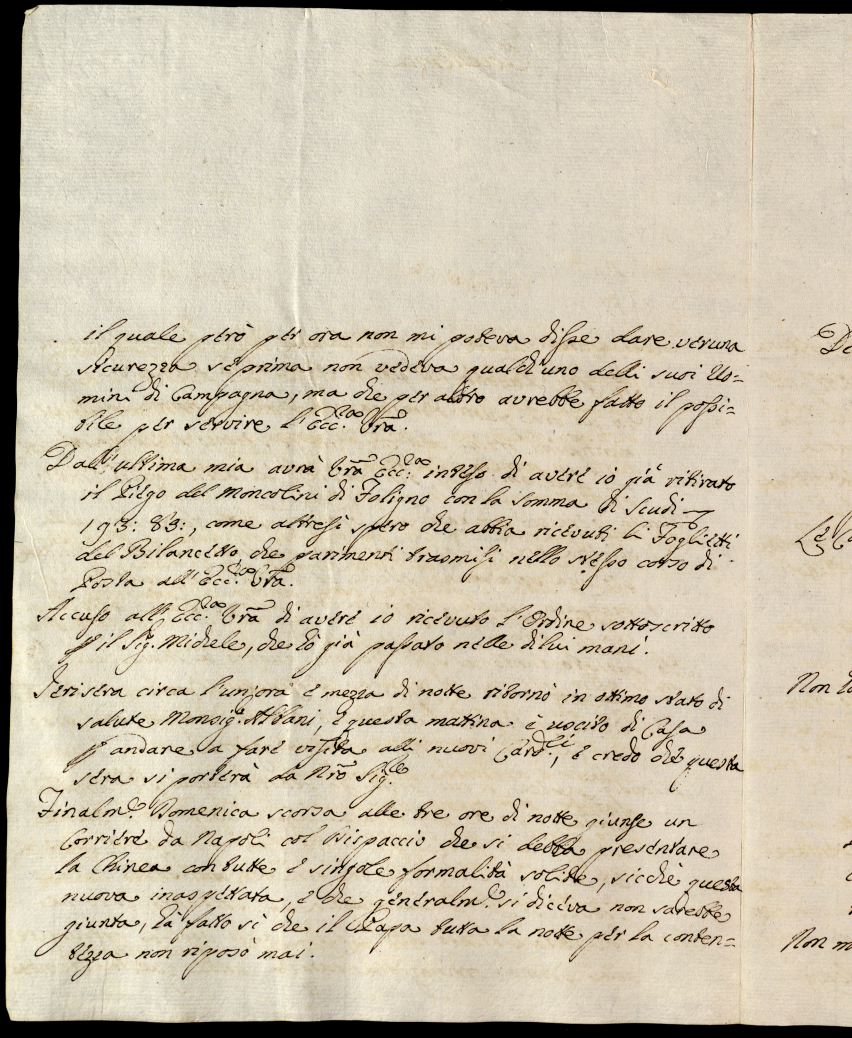 il quale però per ora non mi poteva disse dare veruna
sicurezza se prima non vedeva qualch'uno delli suoi Uo=
mini di Campagna, ma che per altro avrebbe fatto il possi=
bile per servire l'Ecc.za Vrã.
Dall'ultima mia avrà Vrã Ecc.za inteso di avere io già ritirato
il Piego del Moncolini di Foligno con la somma di Scudi
193: 83:, come altresì spero che abbia ricevuti li Foglietti
del Bilancetto che parimenti trasmisi nello stesso corso di
Posta all'Ecc.za Vrã.
Accuso all'Ecc.za Vrã di avere io ricevuto l'Ordine sottoscritto
p il Sig. Michele, che hò già passato nelle di lui mani.
Jerisera circa l'un'ora e mezza di notte ritornò in ottimo stato di
salute Monsig.r Albani, e questa mattina è uscito di Casa
p andare a fare visita alli nuovi Card.li, e credo che questa
sera si porterà da Nrõ Sig.re
Finalm.e Domenica scorsa alle tre ore di notte giunse un
Corriere da Napoli col Dispaccio che si debba presentare
la Chinea con tutte e singole formalità solite, sicchè questa
nuova inaspettata, e che generalm.e si diceva non sarebbe
giunta, hà fatto sì che il Papa tutta la notte per la conten=
tezza non riposò mai.
De
Non
Non m